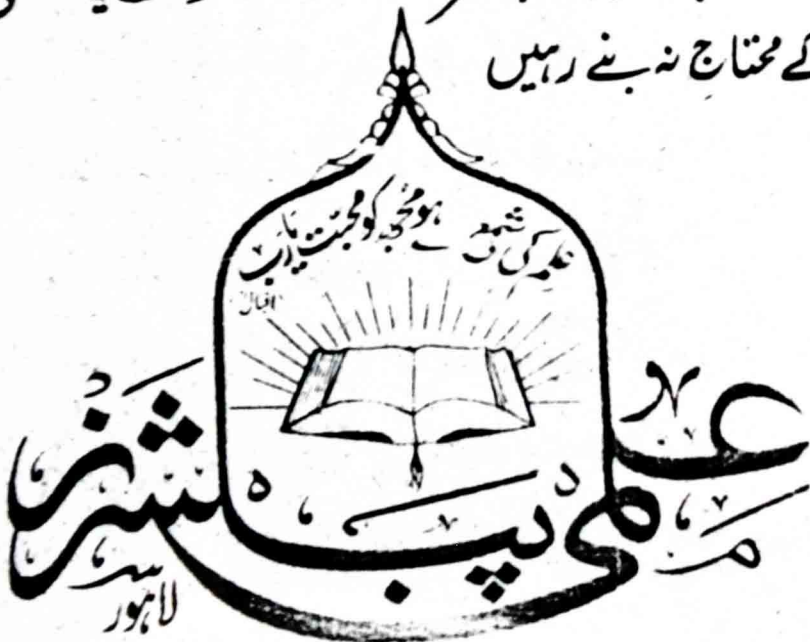 کے محتاج نہ بنے رہیں
علم کی شمع سے ہو مجھ کو محبت یا رب
اقبال
علمی پبلشرز
لاہور